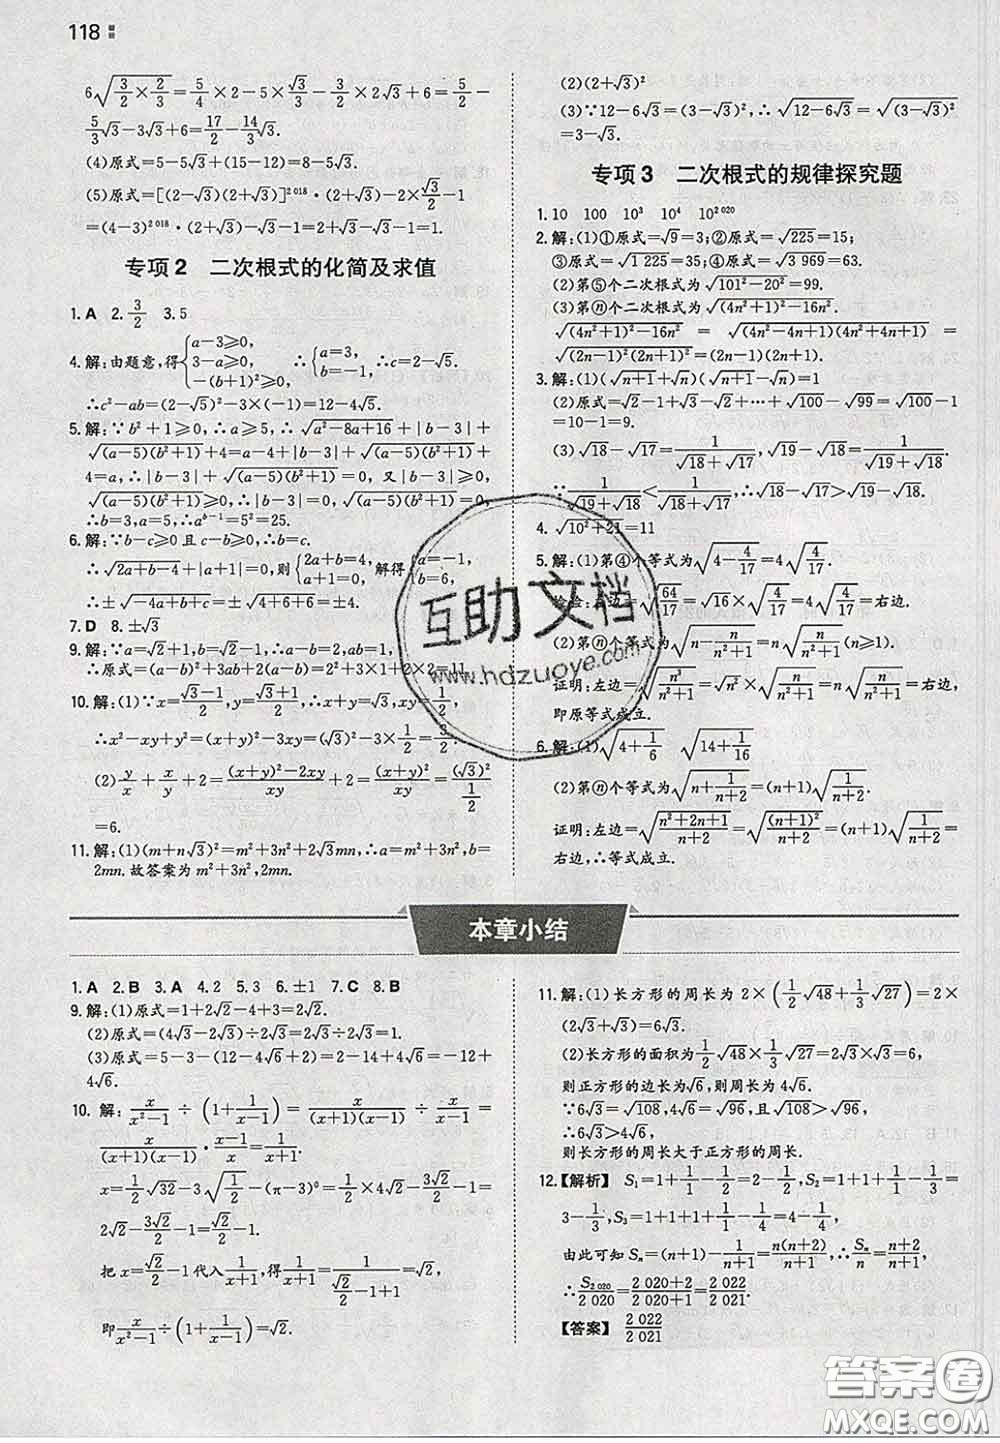 118
6√(3/2×2/3)=5/4×2-5×√3/3-5/2×2√3+6=5/2-
5/3√3-3√3+6=17/2-14/3√3.
(4)原式=5-5√3+(15-12)=8-5√3.
(5)原式=[(2-√3)(2+√3)]²⁰¹⁸·(2+√3)-2×√3/2-1
=(4-3)²⁰¹⁸·(2+√3)-√3-1=2+√3-√3-1=1.
专项2 二次根式的化简及求值
1.A 2.3/2 3.5
4.解:由题意,得{a-3≥0, 3-a≥0, -(b+1)²≥0 ∴{a=3, b=-1, ∴c=2-√5.
∴c²-ab=(2-√5)²-3×(-1)=12-4√5.
5.解:∵b²+1>0,∴a≥5,∴√(a²-8a+16)+|b-3|+
√((a-5)(b²+1))=a-4+|b-3|+√((a-5)(b²+1))+
4=a,∴|b-3|+√((a-5)(b²+1))=0,又|b-3|≥
0,√((a-5)(b²+1))≥0,∴|b-3|=0,√((a-5)(b²+1))=0,
∴b=3,a=5,∴a^(b-1)=5²=25.
6.解:∵b-c≥0且c-b≥0,∴b=c.
∴√(2a+b-4)+|a+1|=0,则{2a+b=4, a+1=0, 解得{a=-1,
∴±√(-4a+b+c)=±√16=±4.
7.D 8.±√3
9.解:∵a=√2+1,b=√2-1,∴a-b=2,ab=1,
∴原式=(a-b)²+3ab+2(a-b)=2²+3×1+2×2=11.
10.解:(1)∵x=(√3-1)/2,y=(√3+1)/2,∴x+y=√3,xy=1/2,
∴x²-xy+y²=(x+y)²-3xy=(√3)²-3×1/2=3/2.
(2)y/x+x/y+2=((x+y)²-2xy)/xy+2=(x+y)²/xy=(√3)²/(1/2)
=6.
11.解:(1)(m+n√3)²=m²+3n²+2√3mn,∴a=m²+3n²,b=
2mn.故答案为m²+3n²,2mn.
(2)(2+√3)²
(3)∵12-6√3=(3-√3)²,∴√(12-6√3)=√((3-√3)²)
=3-√3.
专项3 二次根式的规律探究题
1.10 100 10³ 10⁴ 10²⁰²⁰
2.解:(1)①原式=√9=3;②原式=√225=15;
③原式=√1 225=35;④原式=√3 969=63.
(2)第⑤个二次根式为√(101²-20²)=99.
(3)第ⓝ个二次根式为√((4n²+1)²-16n²).
√((4n²+1)²-16n²)=√((4n²-4n+1)(4n²+4n+1))
=√((2n-1)²(2n+1)²)=(2n-1)(2n+1).
3.解:(1)(√(n+1)+√n)(√(n+1)-√n)=1
(2)原式=√2-1+√3-√2+…+√100-√99=√100-1
=10-1=9.
(3)√18-√17=1/(√18+√17),√19-√18=
1/(√19+√18)<1/(√18+√17),∴√18-√17>√19-√18.
4.√(10²+21)=11
5.解:(1)第④个等式为√(4-4/17)=4√(4/17).
检验:左边=√(64/17)=√16×√(4/17)=4√(4/17)=右边.
(2)第ⓝ个等式为√(n-n/(n²+1))=n√(n/(n²+1))(n≥1).
证明:左边=√(n³/(n²+1))=√n²×√(n/(n²+1))=n√(n/(n²+1))=右边,
即原等式成立.
6.解:(1)√(4+1/6) √(14+1/16)
(2)第ⓝ个等式为√(n+1/(n+2))=(n+1)√(1/(n+2)).
证明:左边=√((n²+2n+1)/(n+2))=√((n+1)²/(n+2))=(n+1)√(1/(n+2))=
右边,∴等式成立.
本章小结
1.A 2.B 3.A 4.2 5.3 6.±1 7.C 8.B
9.解:(1)原式=1+2√2-4+3=2√2.
(2)原式=(4√3-2√3)÷2√3=2√3÷2√3=1.
(3)原式=5-3-(12-4√6+2)=2-14+4√6=-12+
4√6.
10.解:x/(x²-1)÷(1+1/(x-1))=x/((x+1)(x-1))÷x/(x-1)=
x/((x+1)(x-1))·(x-1)/x=1/(x+1).
x=1/2√32-3√(1/2)-(π-3)⁰=1/2×4√2-3√2/2-1=
2√2-3√2/2-1=√2/2-1.
把x=√2/2-1代入1/(x+1),得1/(x+1)=1/(√2/2-1+1)=√2,
即x/(x²-1)÷(1+1/(x-1))=√2.
11.解:(1)长方形的周长为2×(1/2√48+1/3√27)=2×
(2√3+√3)=6√3.
(2)长方形的面积为1/2√48×1/3√27=2√3×√3=6,
则正方形的边长为√6,则周长为4√6.
∵6√3=√108,4√6=√96,且√108>√96,
∴6√3>4√6.
则长方形的周长大于正方形的周长.
12.【解析】S₁=1+1/1-1/2=2-1/2,S₂=1+1+1/1-1/3=
3-1/3,S₃=1+1+1+1/1-1/4=4-1/4,
由此可知Sₙ=(n+1)-1/(n+1)=n(n+2)/(n+1),∴Sₙ/n=(n+2)/(n+1),
∴S₂₀₂₀/2 020=(2 020+2)/(2 020+1)=2 022/2 021.
【答案】2 022/2 021
互助文档
www.hdzuoye.com
答案圈
MXQE.COM